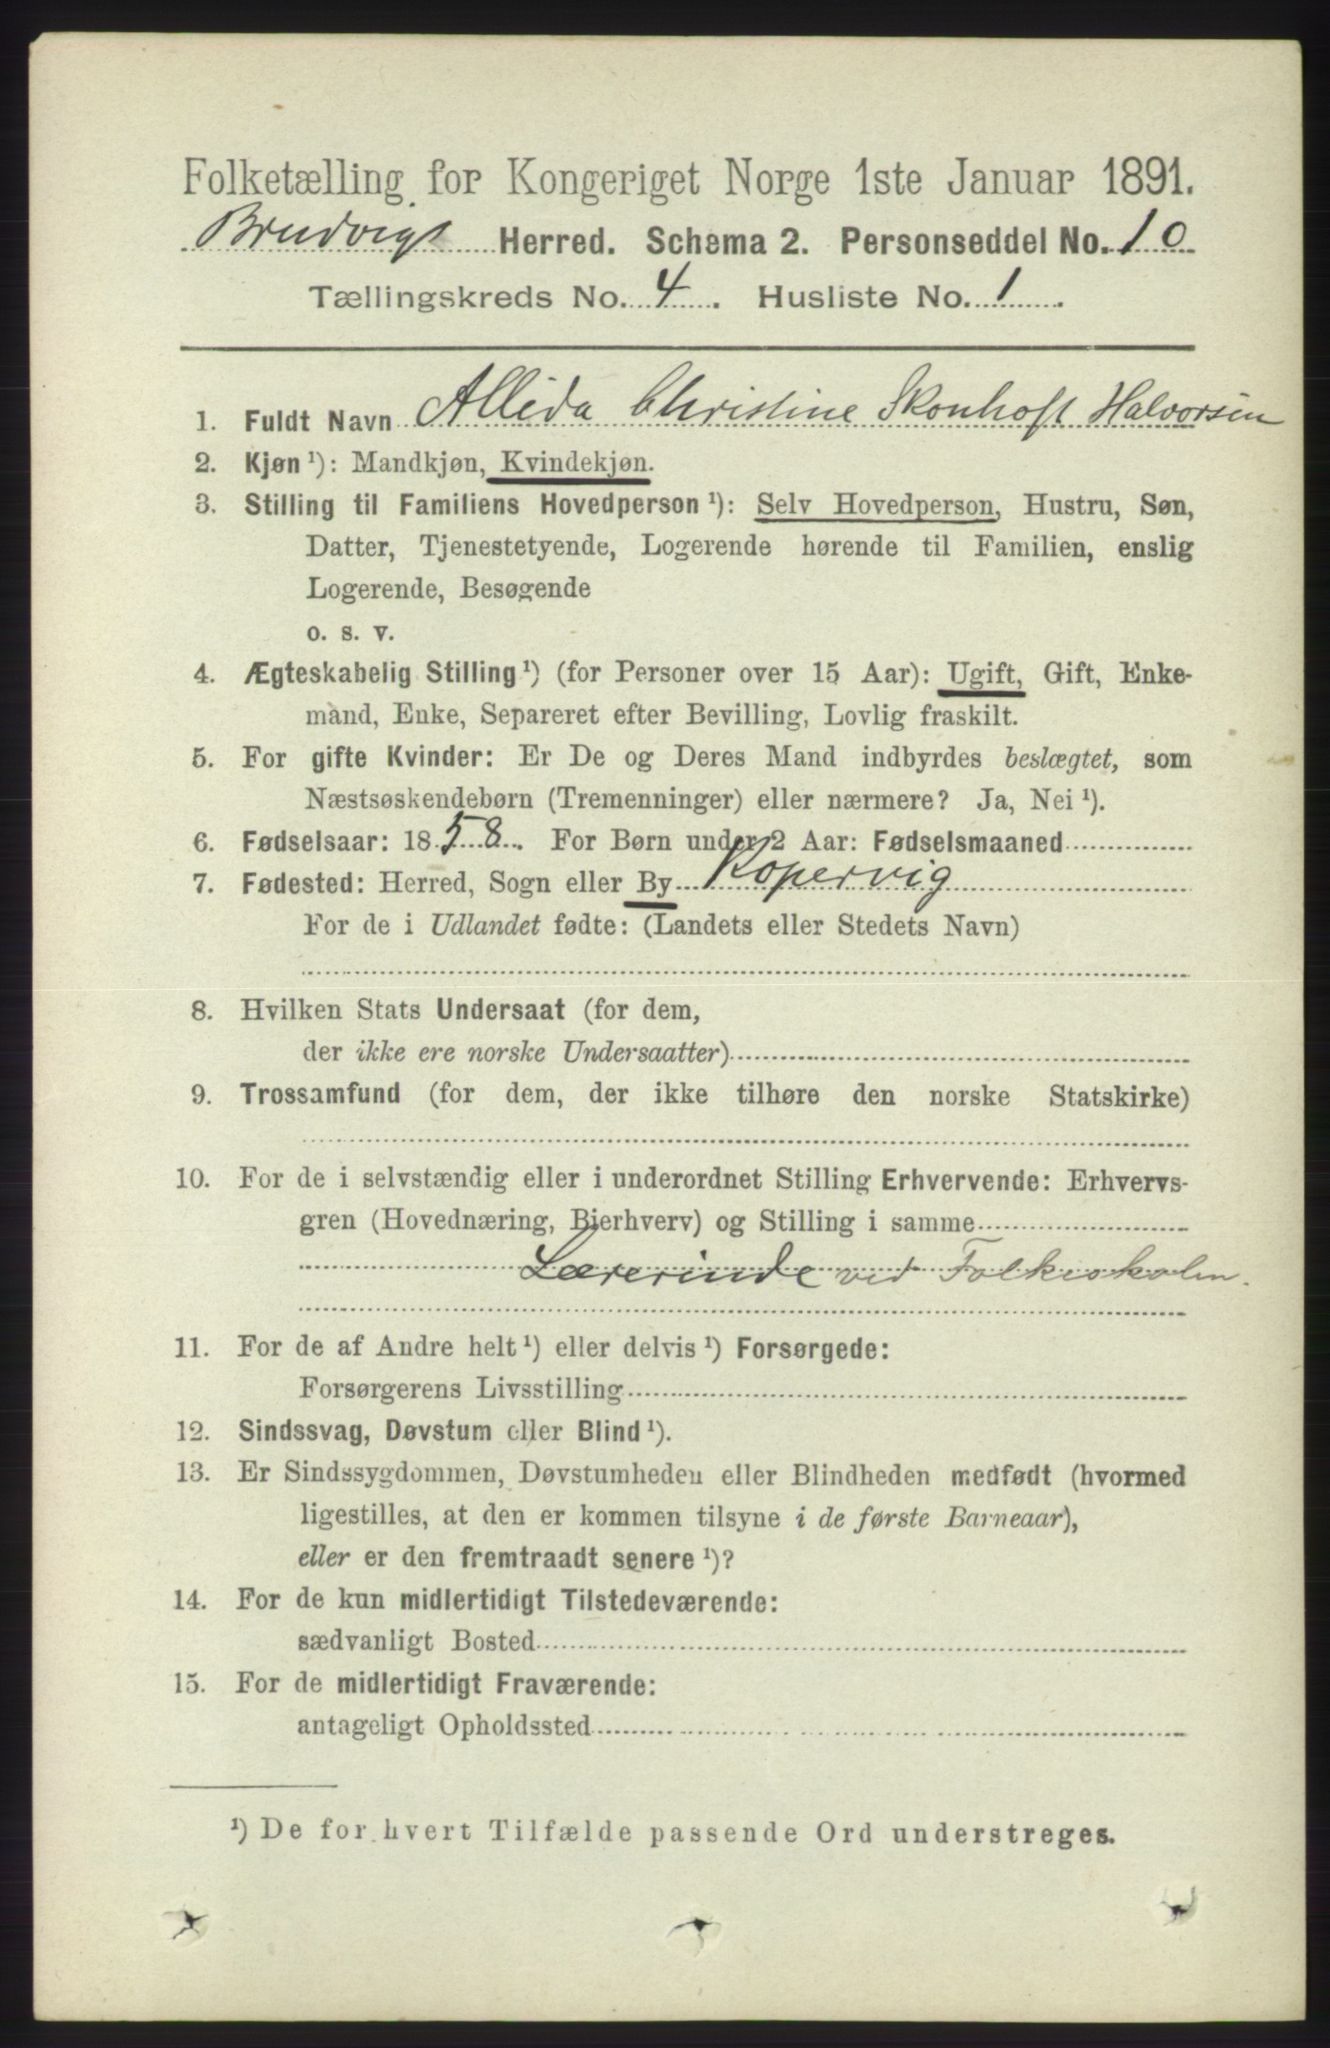 Folketælling for Kongeriget Norge 1ste Januar 1891.
Brudvigs Herred. Schema 2. Personseddel No. 10
Tællingskreds No. 4. Husliste No. 1.
1. Fuldt Navn Allida Christine Skonhoft Halvorsen
2. Kjøn ¹): Mandkjøn, Kvindekjøn.
3. Stilling til Familiens Hovedperson ¹): Selv Hovedperson, Hustru, Søn,
Datter, Tjenestetyende, Logerende hørende til Familien, enslig
Logerende, Besøgende
o. s. v.
4. Ægteskabelig Stilling ¹) (for Personer over 15 Aar): Ugift, Gift, Enke-
mand, Enke, Separeret efter Bevilling, Lovlig fraskilt.
5. For gifte Kvinder: Er De og Deres Mand indbyrdes beslægtet, som
Næstsøskendebørn (Tremenninger) eller nærmere? Ja, Nei ¹).
6. Fødselsaar: 1858. For Børn under 2 Aar: Fødselsmaaned
7. Fødested: Herred, Sogn eller By Kopervig
For de i Udlandet fødte: (Landets eller Stedets Navn)
8. Hvilken Stats Undersaat (for dem,
der ikke ere norske Undersaatter)
9. Trossamfund (for dem, der ikke tilhøre den norske Statskirke)
10. For de i selvstændig eller i underordnet Stilling Erhvervende: Erhvervs-
gren (Hovednæring, Bierhverv) og Stilling i samme
Lærerinde ved Folkeskolen.
11. For de af Andre helt ¹) eller delvis ¹) Forsørgede:
Forsørgerens Livsstilling
12. Sindssvag, Døvstum eller Blind ¹).
13. Er Sindssygdommen, Døvstumheden eller Blindheden medfødt (hvormed
ligestilles, at den er kommen tilsyne i de første Barneaar),
eller er den fremtraadt senere ¹)?
14. For de kun midlertidigt Tilstedeværende:
sædvanligt Bosted
15. For de midlertidigt Fraværende:
antageligt Opholdssted
¹) De for hvert Tilfælde passende Ord understreges.